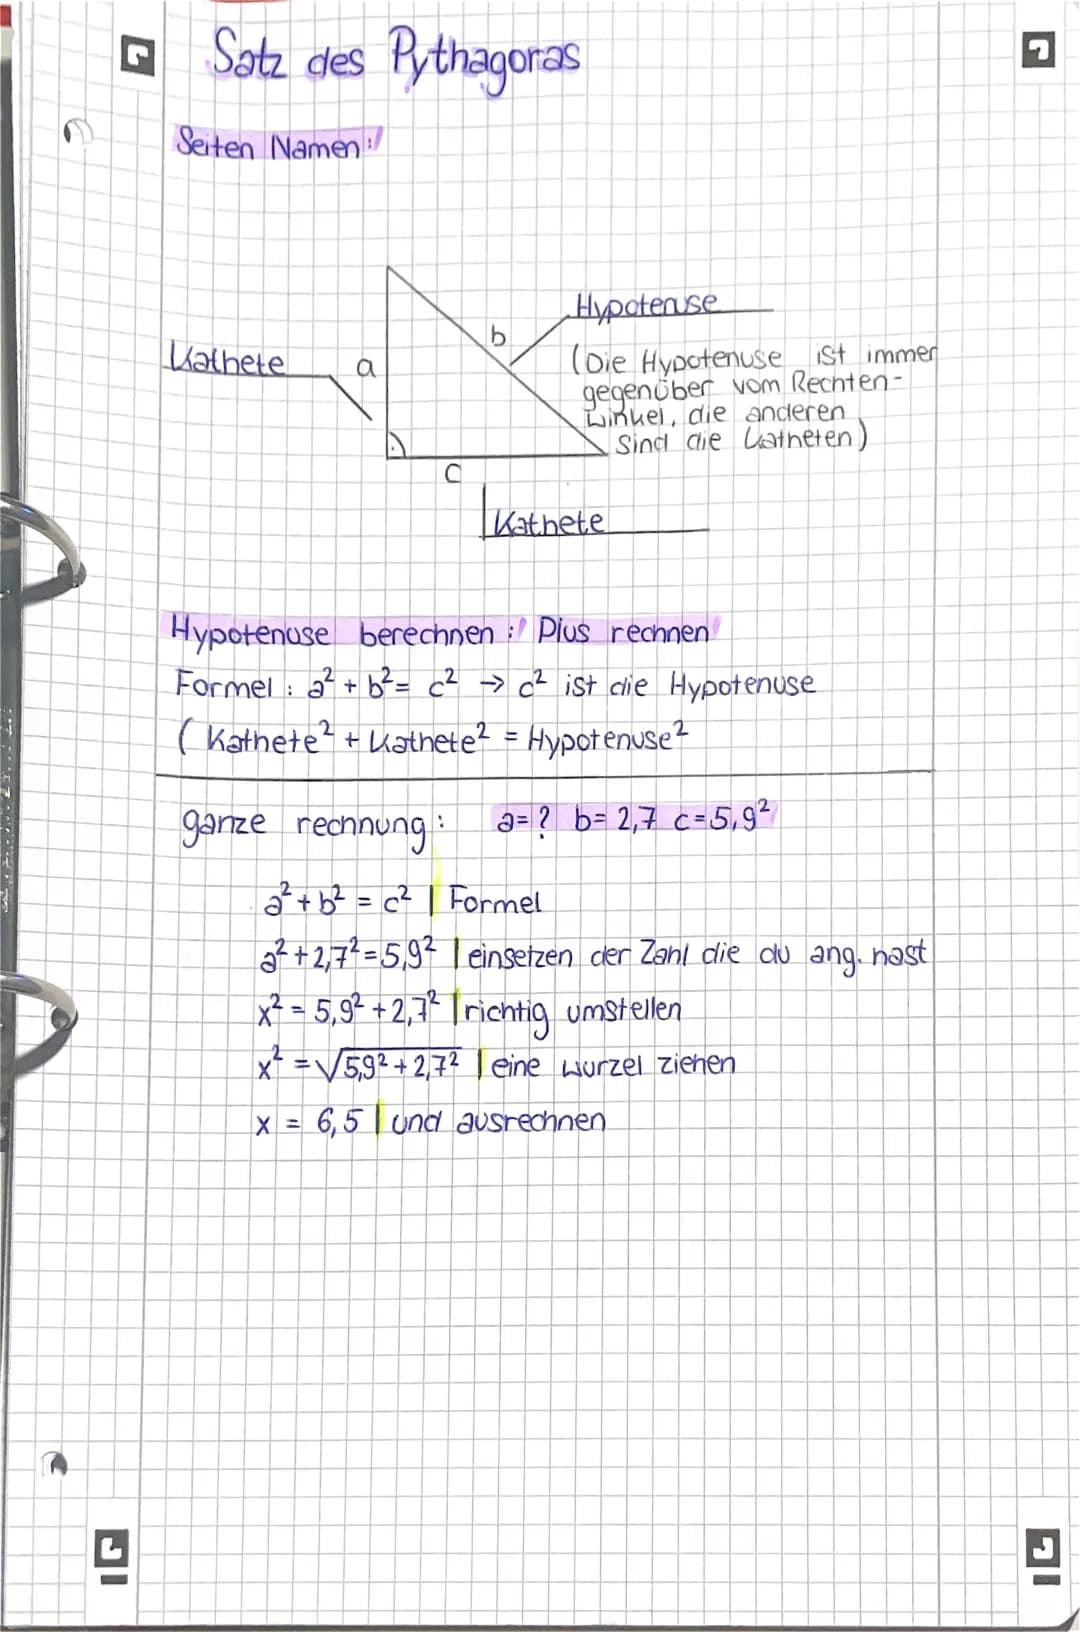 Satz des Pythagoras
Seiten Namen:
Hypotenuse
b
Kathete a
(Die Hypotenuse ist immer
gegenüber vom Rechten-
Winkel, die anderen
sind die Katheten)
c
Kathete
Hypotenuse berechnen: Plus rechnen
Formel: a² + b² = c² → c² ist die Hypotenuse
(Kathete² + Kathete² = Hypotenuse²
ganze rechnung: a=? b=2,7 c=5,9²
a² + b² = c² | Formel
a² + 2,7² = 5,9² | einsetzen der Zahl die du ang. hast
x² = 5,9² + 2,7² | richtig umstellen
x² = √5,9² + 2,7² | eine wurzel ziehen
x = 6,5 | und ausrechnen